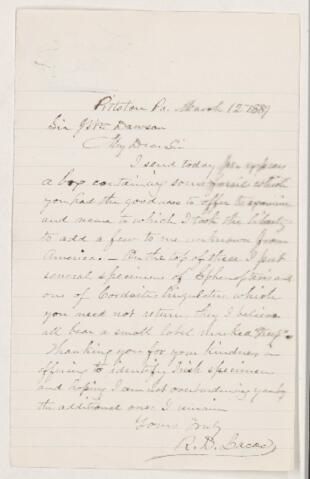 Pittston Pa. March 12 1889
Sir J Wm Dawson
My Dear Sir
I send today per express
a box containing some fossils which
you had the goodness to offer to examine
and name to which I took the liberty
to add a few to me unknown from
America. — On the top of these I put
several specimens of Sphenopteris and
one of Cordaites which
you need not return, they I believe
all bear a small label marked
Thanking you for your kindness in
offering to identify Irish specimens
and hoping I am not overburdening you by
the additional ones I remain
Yours Truly
R. D. Lacoe